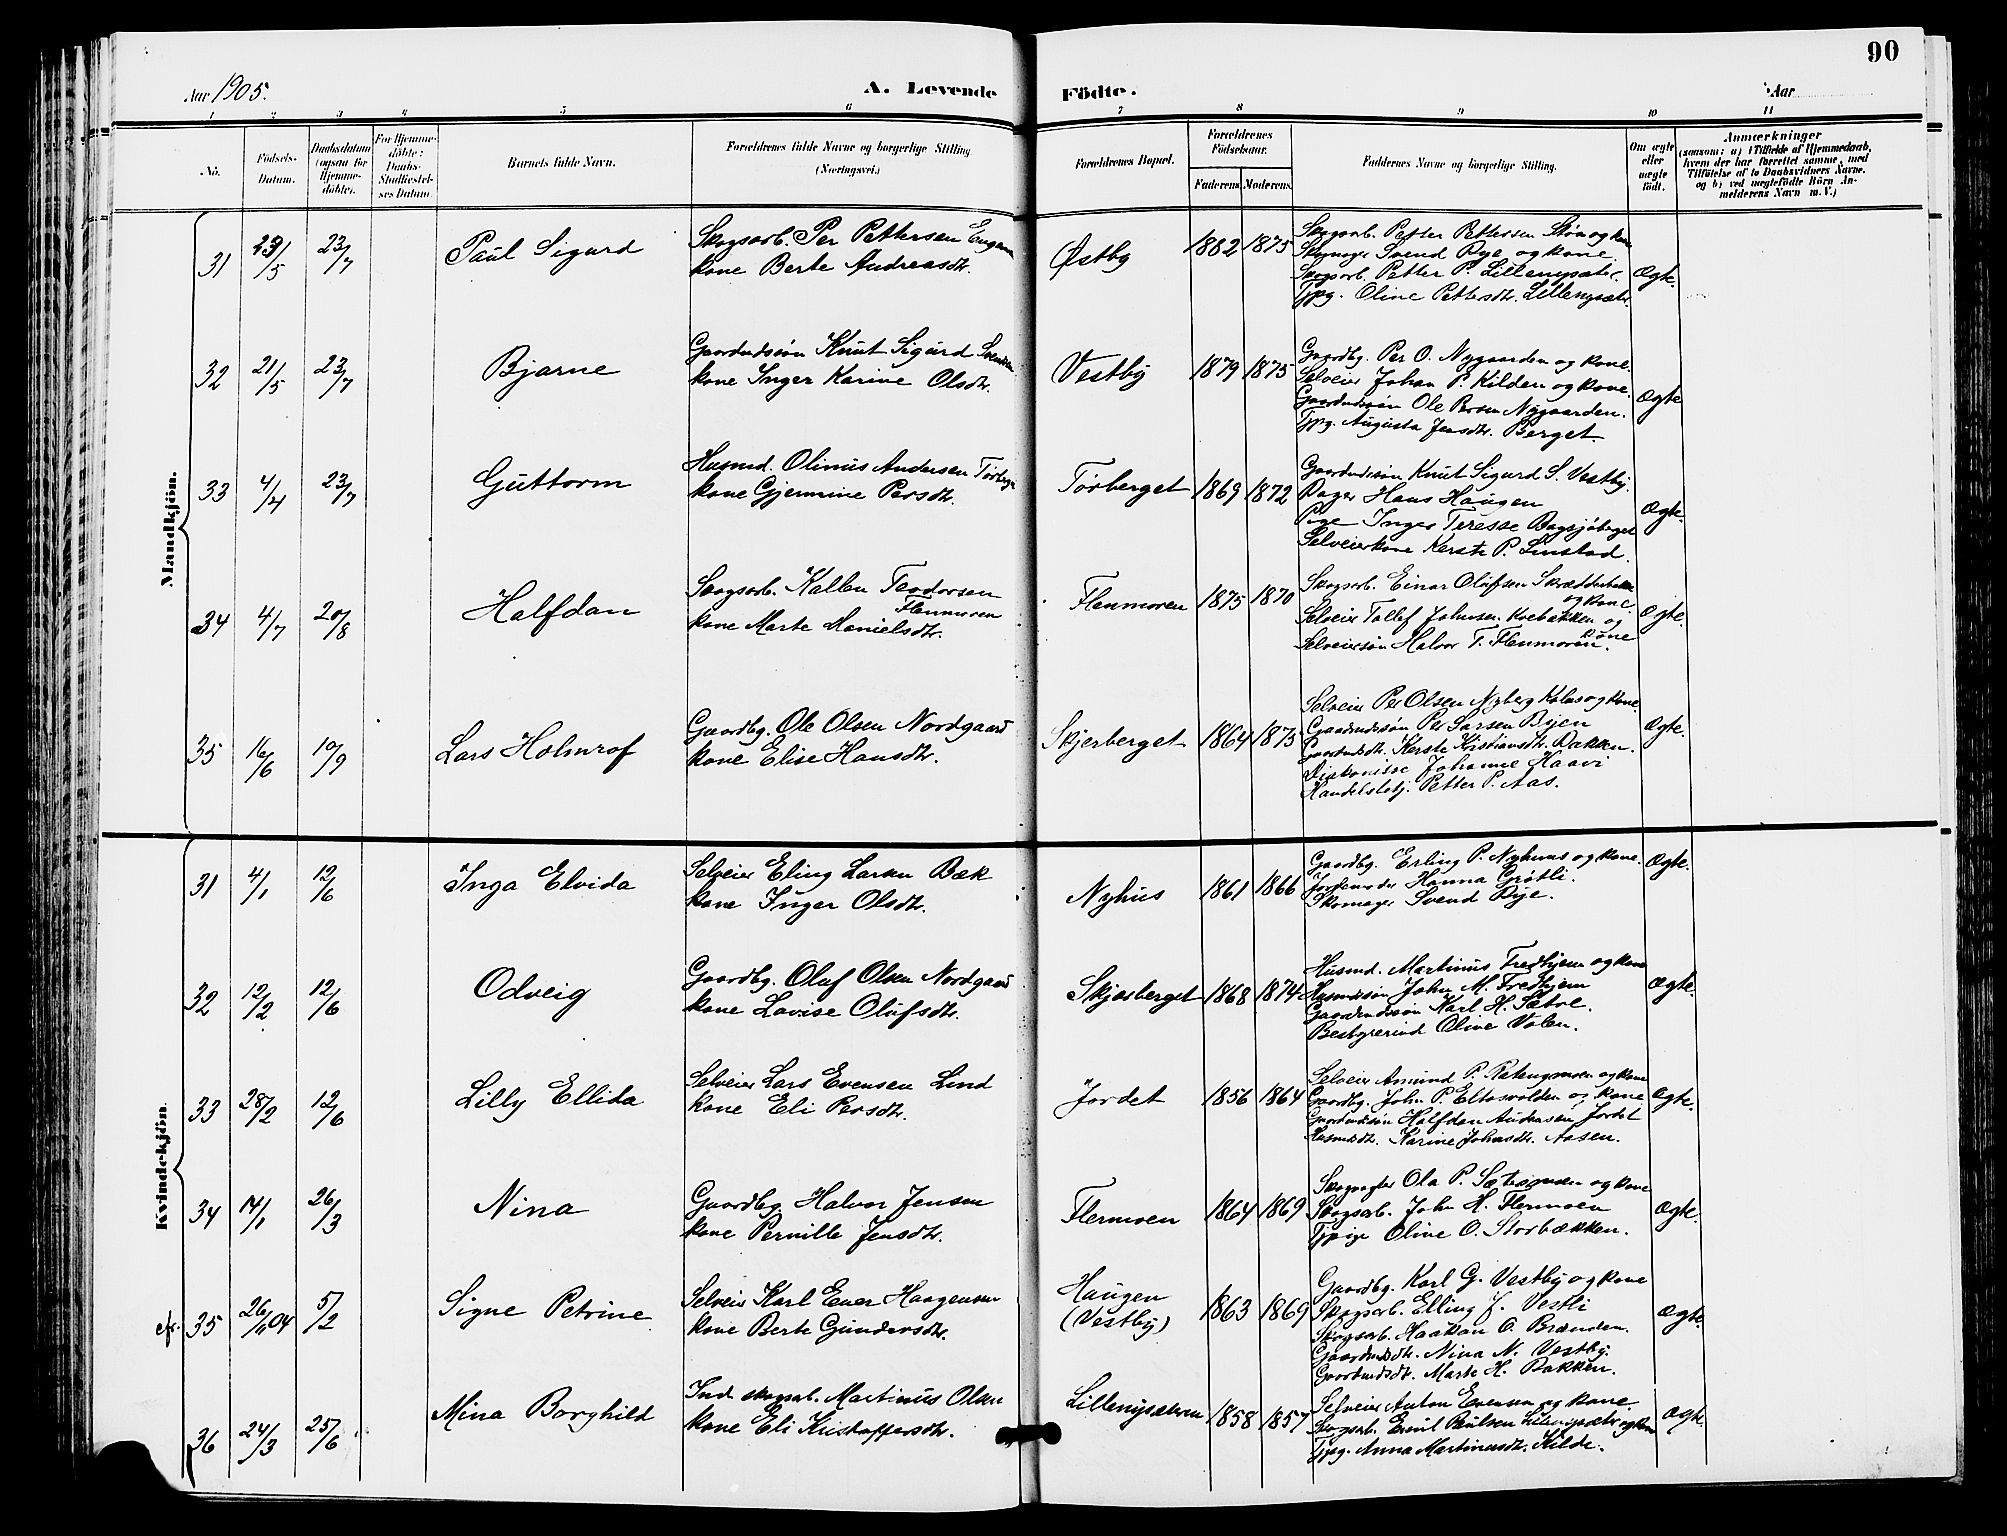 90
Aar 1905.
A. Levende Födte.
Aar
1 2 3 4 5 6 7 8 9 10 11
No.
Födsels-Datum.
Daabsdatum (ogsaa for Hjemme-döbte).
For Hjemme-döbte: Daabs-Stadfæstel-ses Datum.
Barnets fulde Navn.
Forældrenes fulde Navne og borgerlige Stilling (Næringsvei.)
Forældrenes Bopæl.
Forældrenes Födselsaar.
Faderens. Moderens.
Faddernes Navne og borgerlige Stilling.
Om ægte eller uægte födt.
Anmærkninger
(saasom: a) i Tilfælde af Hjemmedaab,
hvem der har forrettet samme, med
Tilföielse af to Daabsvidners Navne,
og b) ved uægtefödte Börn An-
melderens Navn m. V.)
Mandkjön.
31 23/5 23/7 Paul Sigurd
Skogsarb. Per Pettersen
kone Berte Andreasdtr.
Østby 1882 1875
Skogsarb. Petter Pettersen Støa og kone
Skomager Svend Rye og kone
Skogsarb. Petter P. Lillengsæter
Tjpg. Oline Pettersdtr. Lillengsæter.
Ægte.
32 21/5 23/7 Bjarne
Gaardmdssøn Knut Sigurd Svendsen
kone Inger Karine Olsdtr.
Vestby 1879 1875
Gaardbg. Per O. Nygaarden og kone.
Selveier Johan P. Kilden og kone.
Gaardmdssøn Ole Persen Nygaarden.
Tjpg. Augusta Jensdtr. Berget
Ægte
33 4/4 23/7 Guttorm
Husmd. Olinus Andersen Tørberget
kone Gjermine Persdtr.
Tørberget 1869 1872
Gaardmdssøn Knut Sigurd S. Vestby.
Hans Haugen
Pige Inger Teresse
Selveierkone Kerste P. Linstad.
Ægte.
34 4/7 20/8 Halfdan
Skogsarb. Kallen Teodorsen
Flenmoren
kone Marte Danielsdtr.
Flenmoren 1875 1870
Skogsarb. Einar Olufsen Skrædderbakken
og kone.
Selveier Tollef Johnsen Kvebakken og
kone
Selveiersøn Halvor T. Flenmoren.
Ægte.
35 16/6 10/9 Lars Holmrof
Gaardbg. Ole Olsen Nordgaard
kone Elise Hansdtr.
Skjerberget 1864 1873
Selveier Per Olsen Nyberg Kolos og kone.
Gaardmdssøn Per Larsen Byen
Gaardmdsdtr. Kerste Kristiansdtr. Bakken.
Diakonisse Johanne Haavi
Handelsbetj. Petter P. Aas.
Ægte.
Kvindekjön.
31 4/1 12/6 Inga Elvida
Selveier Eling Larsen Bæk
kone Inger Olsdtr.
Nyhus 1861 1866
Gaardbg. Erling P. Nyhuus og kone.
Jordemoder Hanna Grøtli.
Skomager Svend Rye.
Ægte.
32 12/2 12/6 Odveig
Gaardbg. Oluf Olsen Nordgaard
kone Lovise Olufsdtr.
Skjærberget 1868 1874
Husmd. Martinus Fredhjem og kone
Husmdssøn John M. Fredhjem
Gaardmdssøn Karl H. Sætre.
Bestyrerind Oline Volen.
Ægte.
33 28/2 12/6 Lilly Ellida
Selveier Lars Evensen Lind
kone Eli Persdtr.
Jordet 1856 1864
Selveier Amund P. og kone
Gaardbg. John P. Eltosvolden og kone
Gaardmdssøn Halfdan Andersen Jordet
Husmdsdtr. Karine Johnsdtr. Aasen.
Ægte.
34 14/1 26/3 Nina
Gaardbg. Halvor Jensen
kone Pernille Jensdtr.
Flermoen 1864 1869
Skogvogter Ola P. Sætersmoen og kone
Skogsarb. John H. Flermoen
Tjpige Oline O. Storbækken.
Ægte.
cfr. 35 26/11 04 5/2 Signe Petrine
Selveier Karl Ener Haagensen
kone Berte Gundersdtr.
Haugen
(Vestby)
1863 1869
Gaardbg. Karl G. Vestby og kone
Skogsarb. Elling J. Vestli
Skogsarb. Haakon O. Brænden.
Gaardmdsdtr. Nina N. Vestby.
Gaardmdsdtr. Marte H. Bakken.
Ægte.
36 24/3 25/6 Mina Borghild
Ind. skogsarb. Martinus Olsen
kone Eli Kristoffersdtr.
Lillengsæteren 1858 1857
Selveier Anton Evensen og kone.
Skogsarb. Emil Paulsen Lillengsæter og kone
Tjpg. Anna Martinusdtr. Kilde.
Ægte.